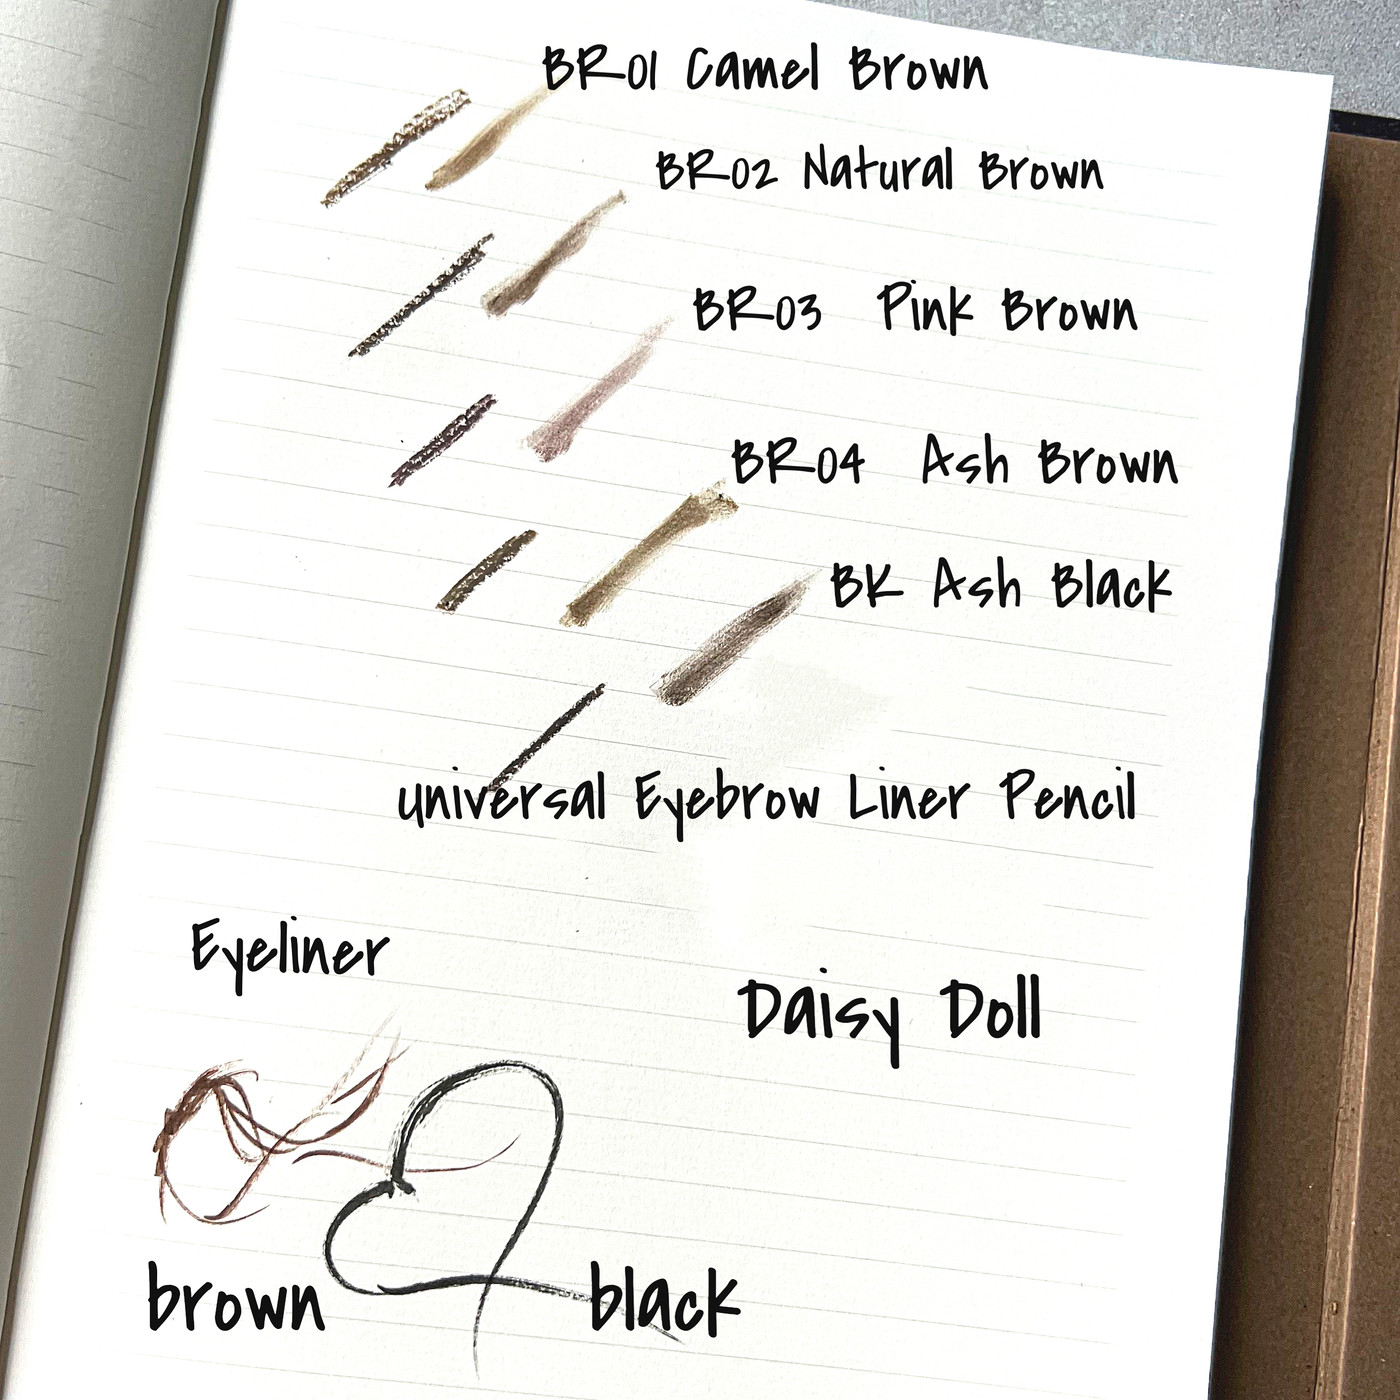 BR01 Camel Brown
BR02 Natural Brown
BR03 Pink Brown
BR04 Ash Brown
BK Ash Black
universal Eyebrow Liner Pencil
Eyeliner
Daisy Doll
brown
black